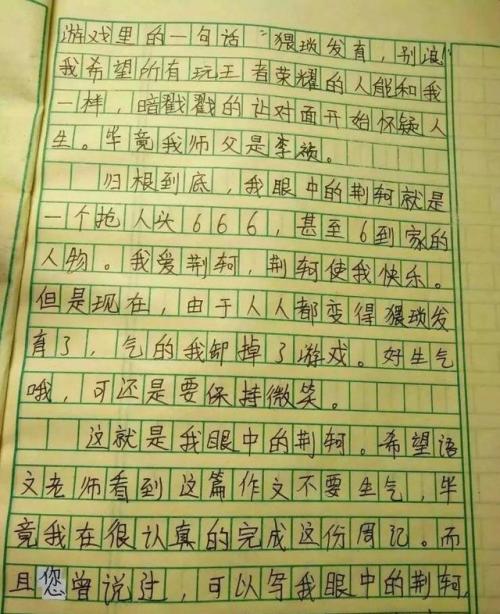 游戏里的一句话“猥琐发育,别浪
我希望所有玩王者荣耀的人能和我
一样,暗戳戳的让对面开始怀疑人
生。毕竟我师父是李
归根到底,我眼中的荆轲就是
一个抢人头666,甚至6到家的
人物。我爱荆轲,荆轲使我快乐。
但是现在,由于人人都变得猥琐发
育了,气的我卸掉了游戏。好生气
哦,可还是要保持微笑。
这就是我眼中的荆轲。希望语
文老师看到这篇作文不要生气,毕
竟我在很认真的完成这份周记。而
且您曾说过,可以写我眼中的荆轲,